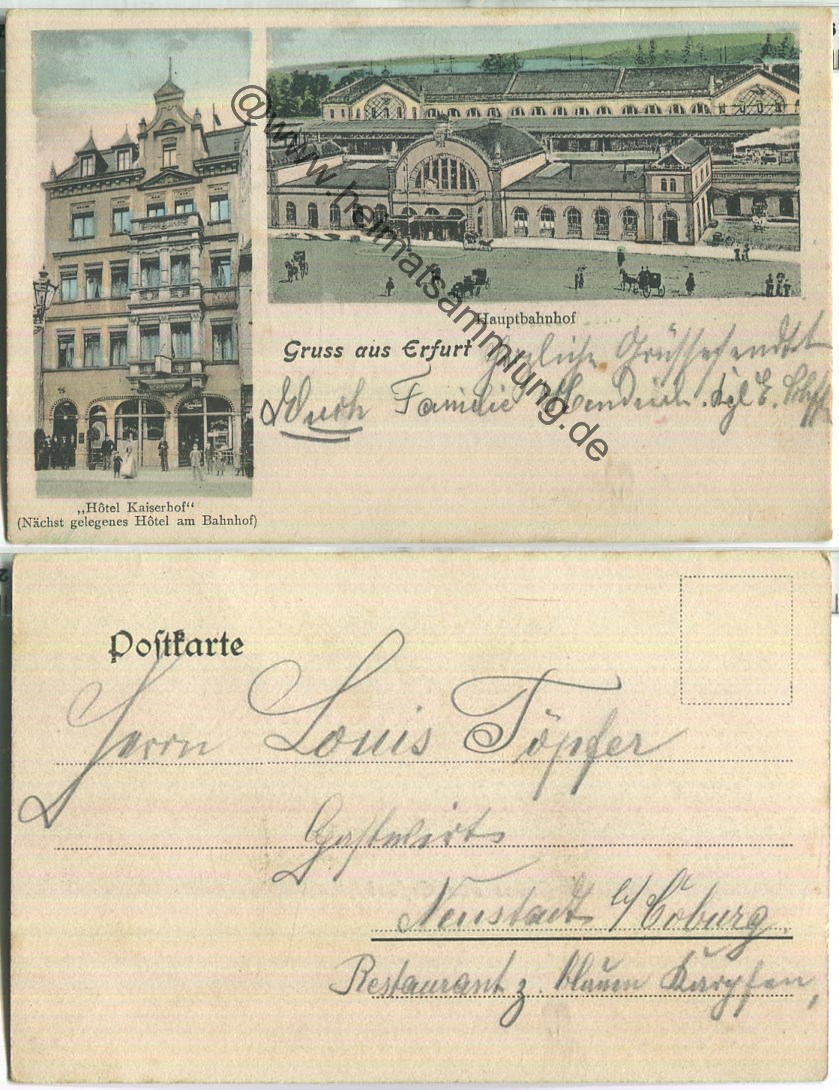 Hauptbahnhof
Gruss aus Erfurt Herzliche Grüsse sendet
Euch Familie
„Hôtel Kaiserhof“
(Nächst gelegenes Hôtel am Bahnhof)
@www.heimatsammlung.de
Postkarte
Herrn Louis Töpfer
Gastwirt
Neustadt b/ Coburg,
Restaurant z. blauen Karpfen,